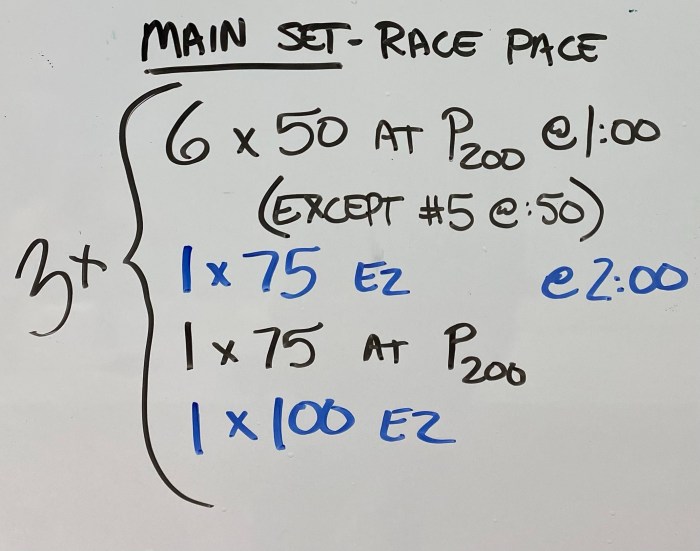 MAIN SET - RACE PACE
6 x 50 AT P200 @1:00
(EXCEPT #5 @:50)
3x
1 x 75 EZ @2:00
1 x 75 AT P200
1 x 100 EZ